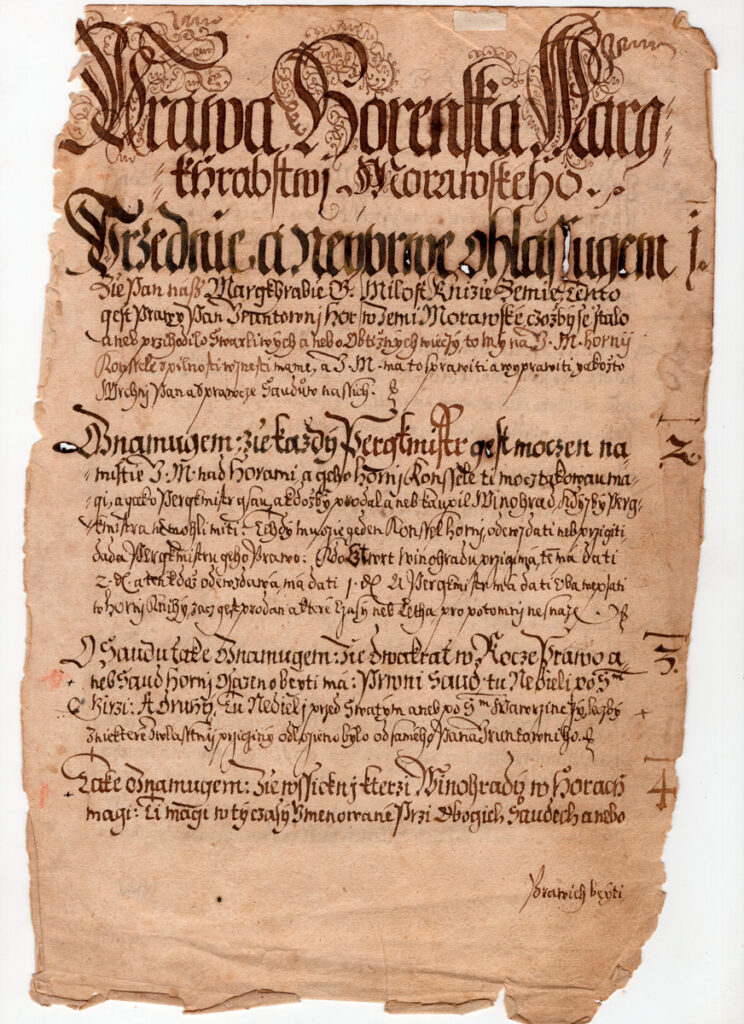 Prawa Horenska Marg-
khrabstwj Morawskeho.
Przednie a neyprwe ohlassugem 1.
Zie Pan nass Margkhrabie G. Milost Knizie Zemie, tento
gest Prawy Pan Gruntownj hor w Zemi Morawske, czozby se stalo
aneb przihodilo Swarliwych anebo Obtiznych wieczy, to my na G. M. hornij
Konssele w plnosti wznesti mame, a G. M. ma to sprawiti a wyprawiti, yakožto
Wrchnj Pan a Sprawcze Saudůw nassich.
Oznamugem: zie každy Pergkmistr gest moczen na 2.
mistie G. M. nad horami, a geho hornj Konssele ti mocz takowau ma-
gi, a gako Pergkmistr gsau, a kdožby prodal aneb kaupil Winohrad, kdyžby Perg-
kmistra nemohli miti: Tehdy muozie geden Konssel hornj, odewzdati neb przigiti
dada Pergkmistru geho Prawo: Kdo cztwrt winohradu przigima, ten ma dati
2. d. a ten kdož odewzdawa, ma dati 1. d. A Pergkmistr ma dati oba wepsati
w hornj Knihy, zacz gest prodan a které czasy neb Letha, pro potomnj nesnaze.
O Saudu také Oznamugem: Zie dwakrat w Rocze Prawo a- 3.
neb Saud hornj osazen beyti má: Prwni Saud tu Nedieli po Sm
Girzi: A druhy, tu Nedieli przed Swatym aneb po Sm Wawrzinczy, lecžby
z niektere zwlasstny przicziny odlozieno bylo od samého Pana Gruntowniho.
Take Oznamugem: Zie wssickni kterzi Winohrady w horach 4
magi: Ti magi w ty czasy gmenowané Przi obogich Saudech anebo
Prawich beyti